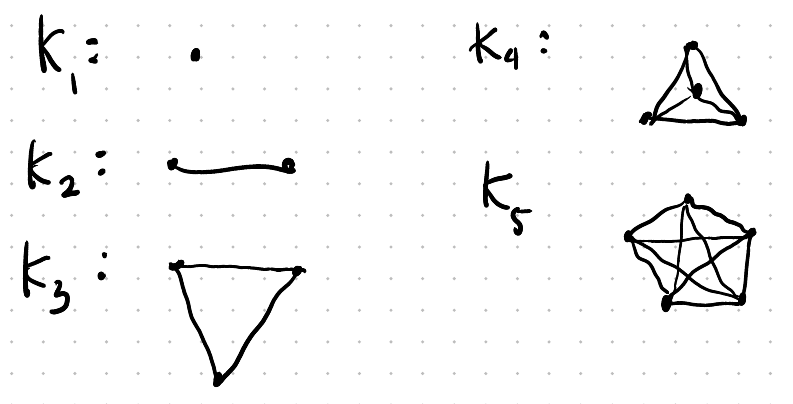 K₁:
K₂:
K₃:
K₄:
K₅